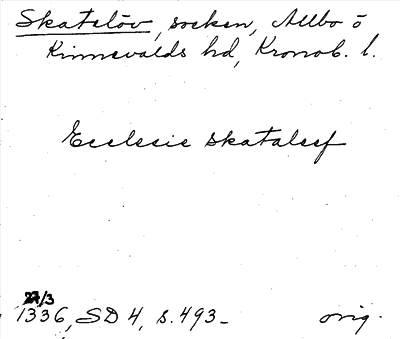 Skatelöv, socken, Allbo o
Kinnevalds hd, Kronob. l.
Ecclesie skatalef
27/3
1336, SD 4, s. 493.
orig.